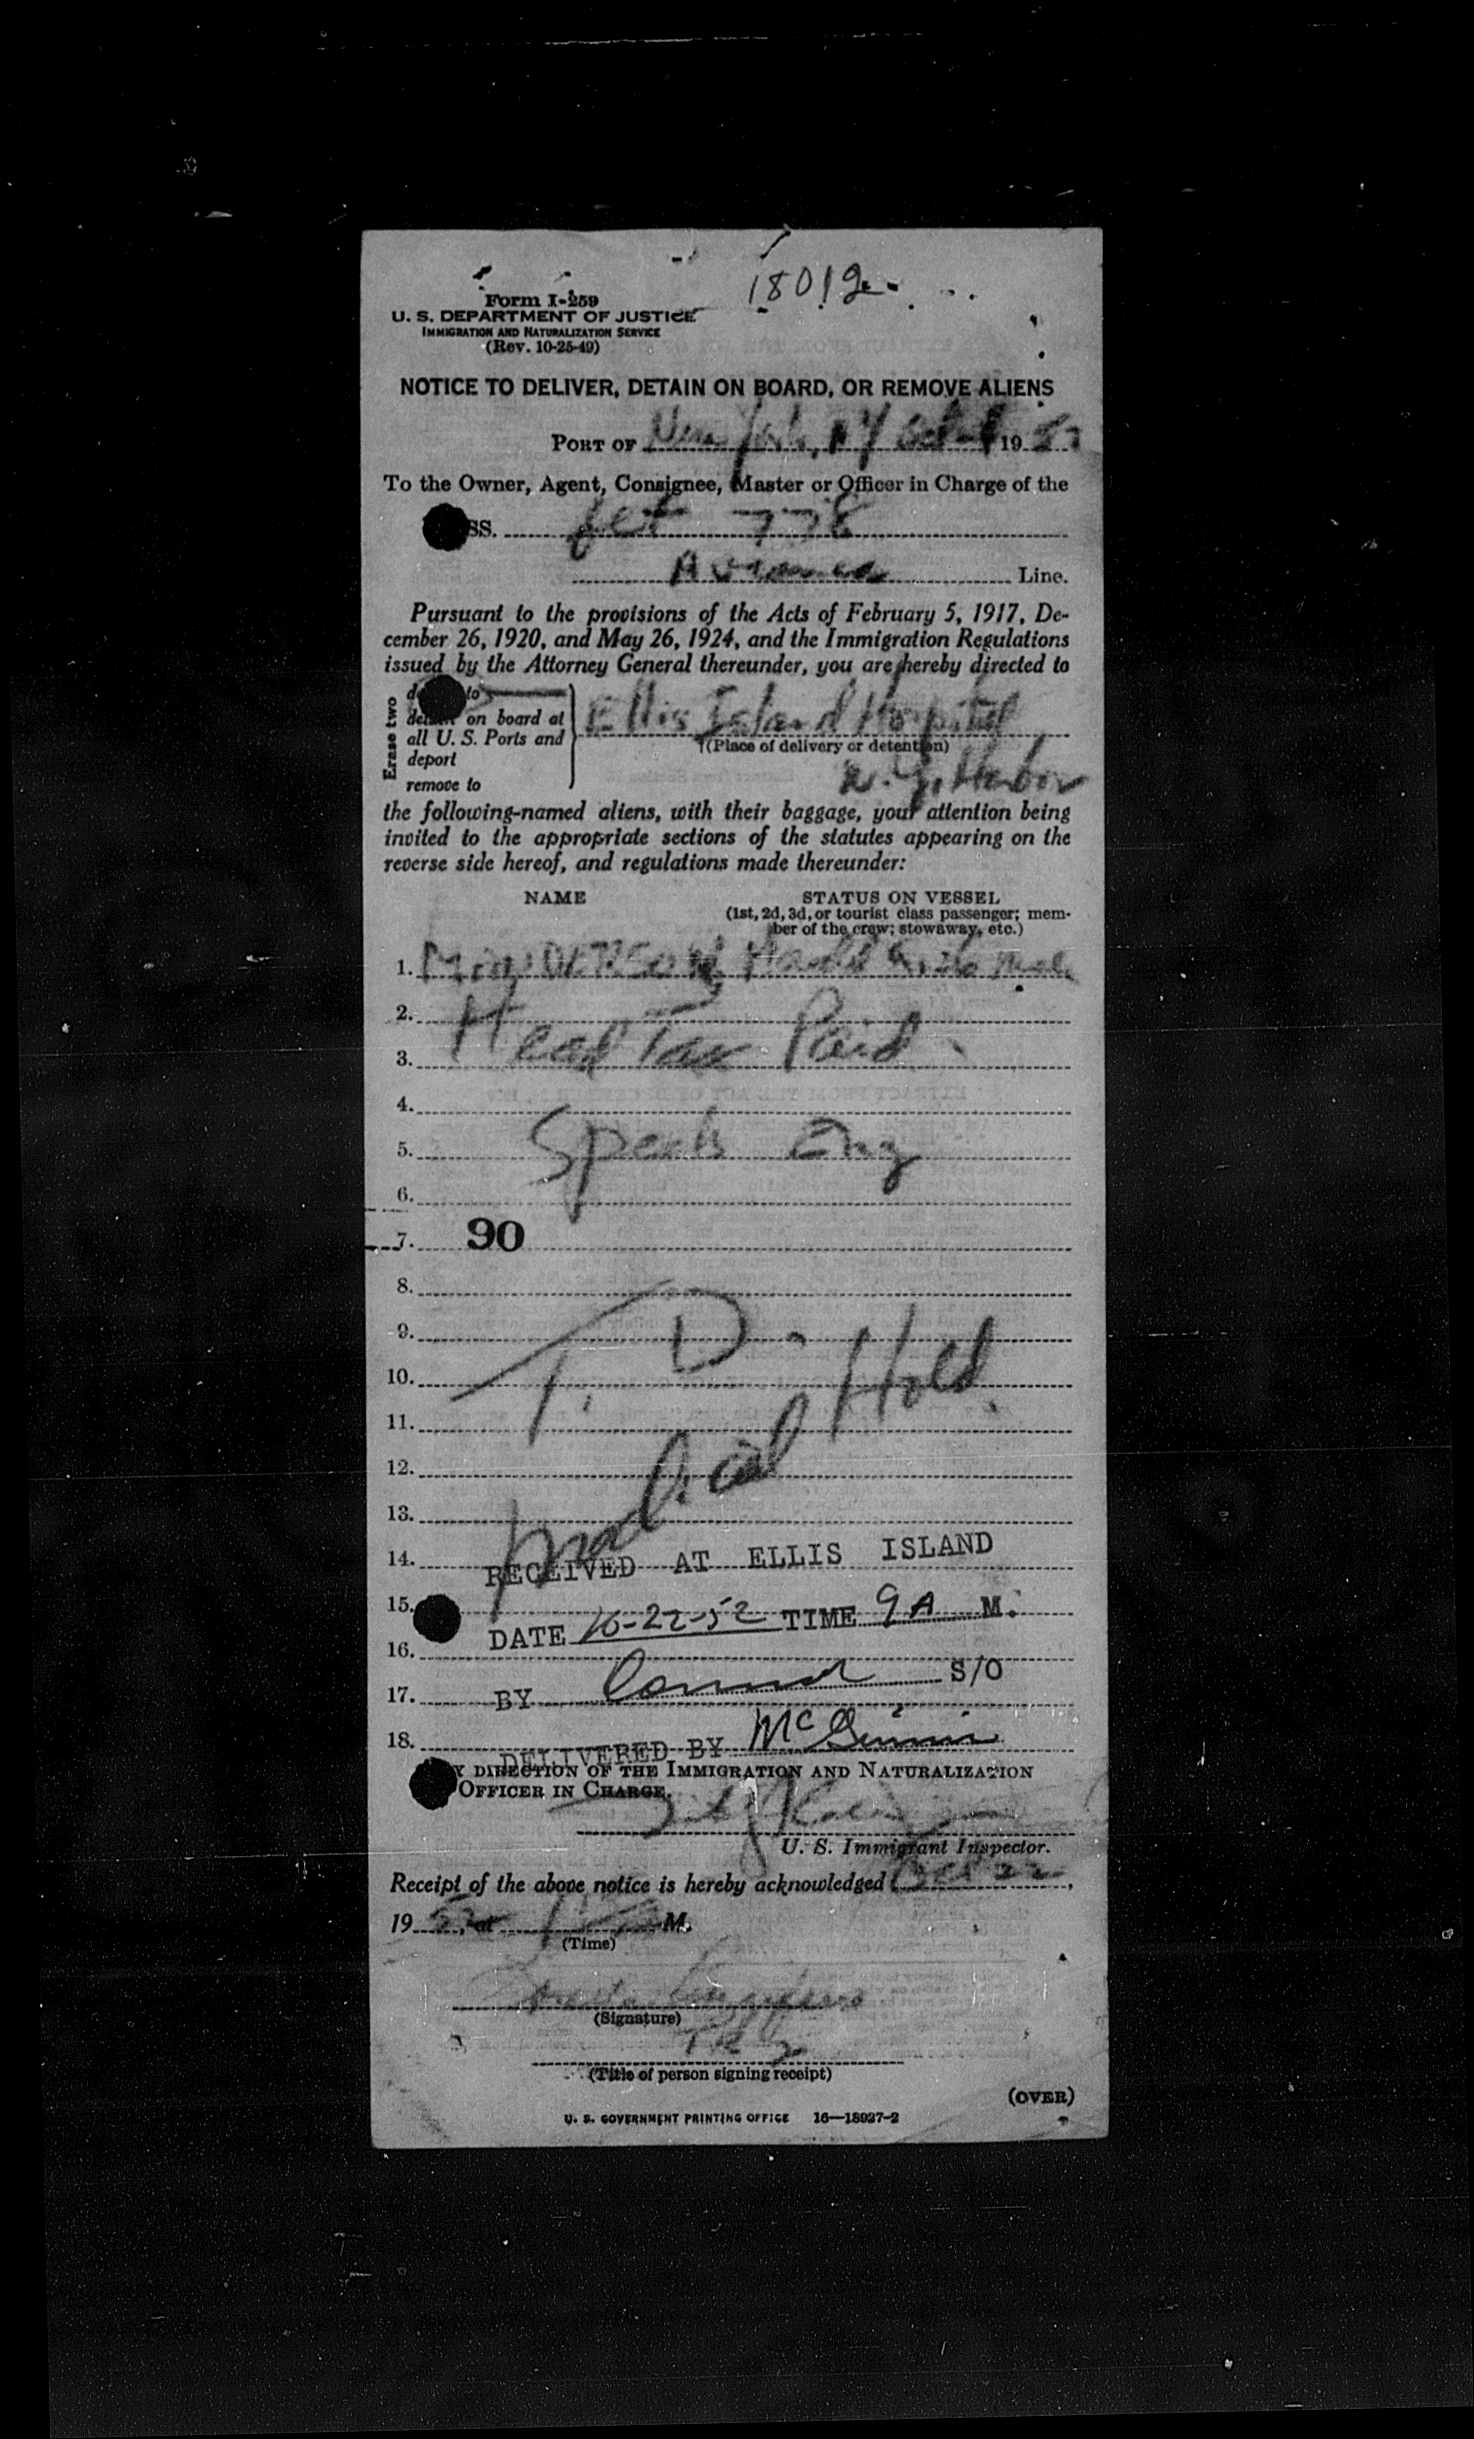 18012
Form I-259
U. S. DEPARTMENT OF JUSTICE
IMMIGRATION AND NATURALIZATION SERVICE
(Rev. 10-25-49)
NOTICE TO DELIVER, DETAIN ON BOARD, OR REMOVE ALIENS
PORT OF New York, NY 19
To the Owner, Agent, Consignee, Master or Officer in Charge of the
SS. 778
Avianca Line.
Pursuant to the provisions of the Acts of February 5, 1917, De-
cember 26, 1920, and May 26, 1924, and the Immigration Regulations
issued by the Attorney General thereunder, you are hereby directed to
Erase two
to
on board at Ellis Island Hospital
all U. S. Ports and (Place of delivery or detention)
deport N.Y. Harbor
remove to
the following-named aliens, with their baggage, your attention being
invited to the appropriate sections of the statutes appearing on the
reverse side hereof, and regulations made thereunder:
NAME STATUS ON VESSEL
(1st, 2d, 3d, or tourist class passenger; mem-
ber of the crew; stowaway, etc.)
1.
2.
3. Head Tax Paid
4.
5. Speaks Eng
6.
7. 90
8.
9. T. D.
10. Hold
11.
12. Medical
13.
14. RECEIVED AT ELLIS ISLAND
15.
DATE 10-22-52 TIME 9 A M.
16.
17. BY S/O
18. DELIVERED BY McGinnis
BY DIRECTION OF THE IMMIGRATION AND NATURALIZATION
OFFICER IN CHARGE.
U. S. Immigrant Inspector.
Receipt of the above notice is hereby acknowledged Oct 22,
19 52, at M.
(Time)
(Signature)
(Title of person signing receipt)
(OVER)
U. S. GOVERNMENT PRINTING OFFICE 16—18927-2